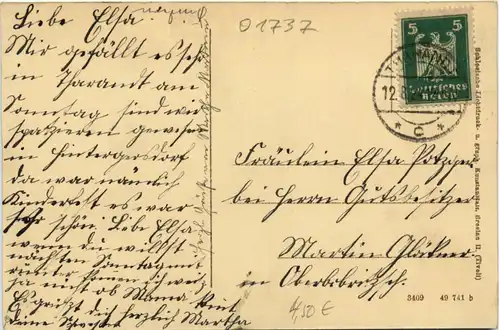 Liebe Elsa.
Mir gefällt es sehr
in Tharandt am
Sonntag sind wir
spazieren gewesen
in Hintergersdorf
da war nämlich
Kinderfest es war
sehr schön. Liebe Elsa
wenn du willst
nächsten Sonntag
kommen ich weiß
ja nicht ob Mama
Es grüßt dich herzlich Martha
01737
5 5
Deutsches
Reich
THARANDT
12.8
* c *
Fräulein Elsa
bei Herrn Gutsbesitzer
Martin
in Oberbobritzsch.
Schlesische Lichtdruck- u. graph. Kunstanstalt, Breslau II.
3409 49 741 b
4,50 €